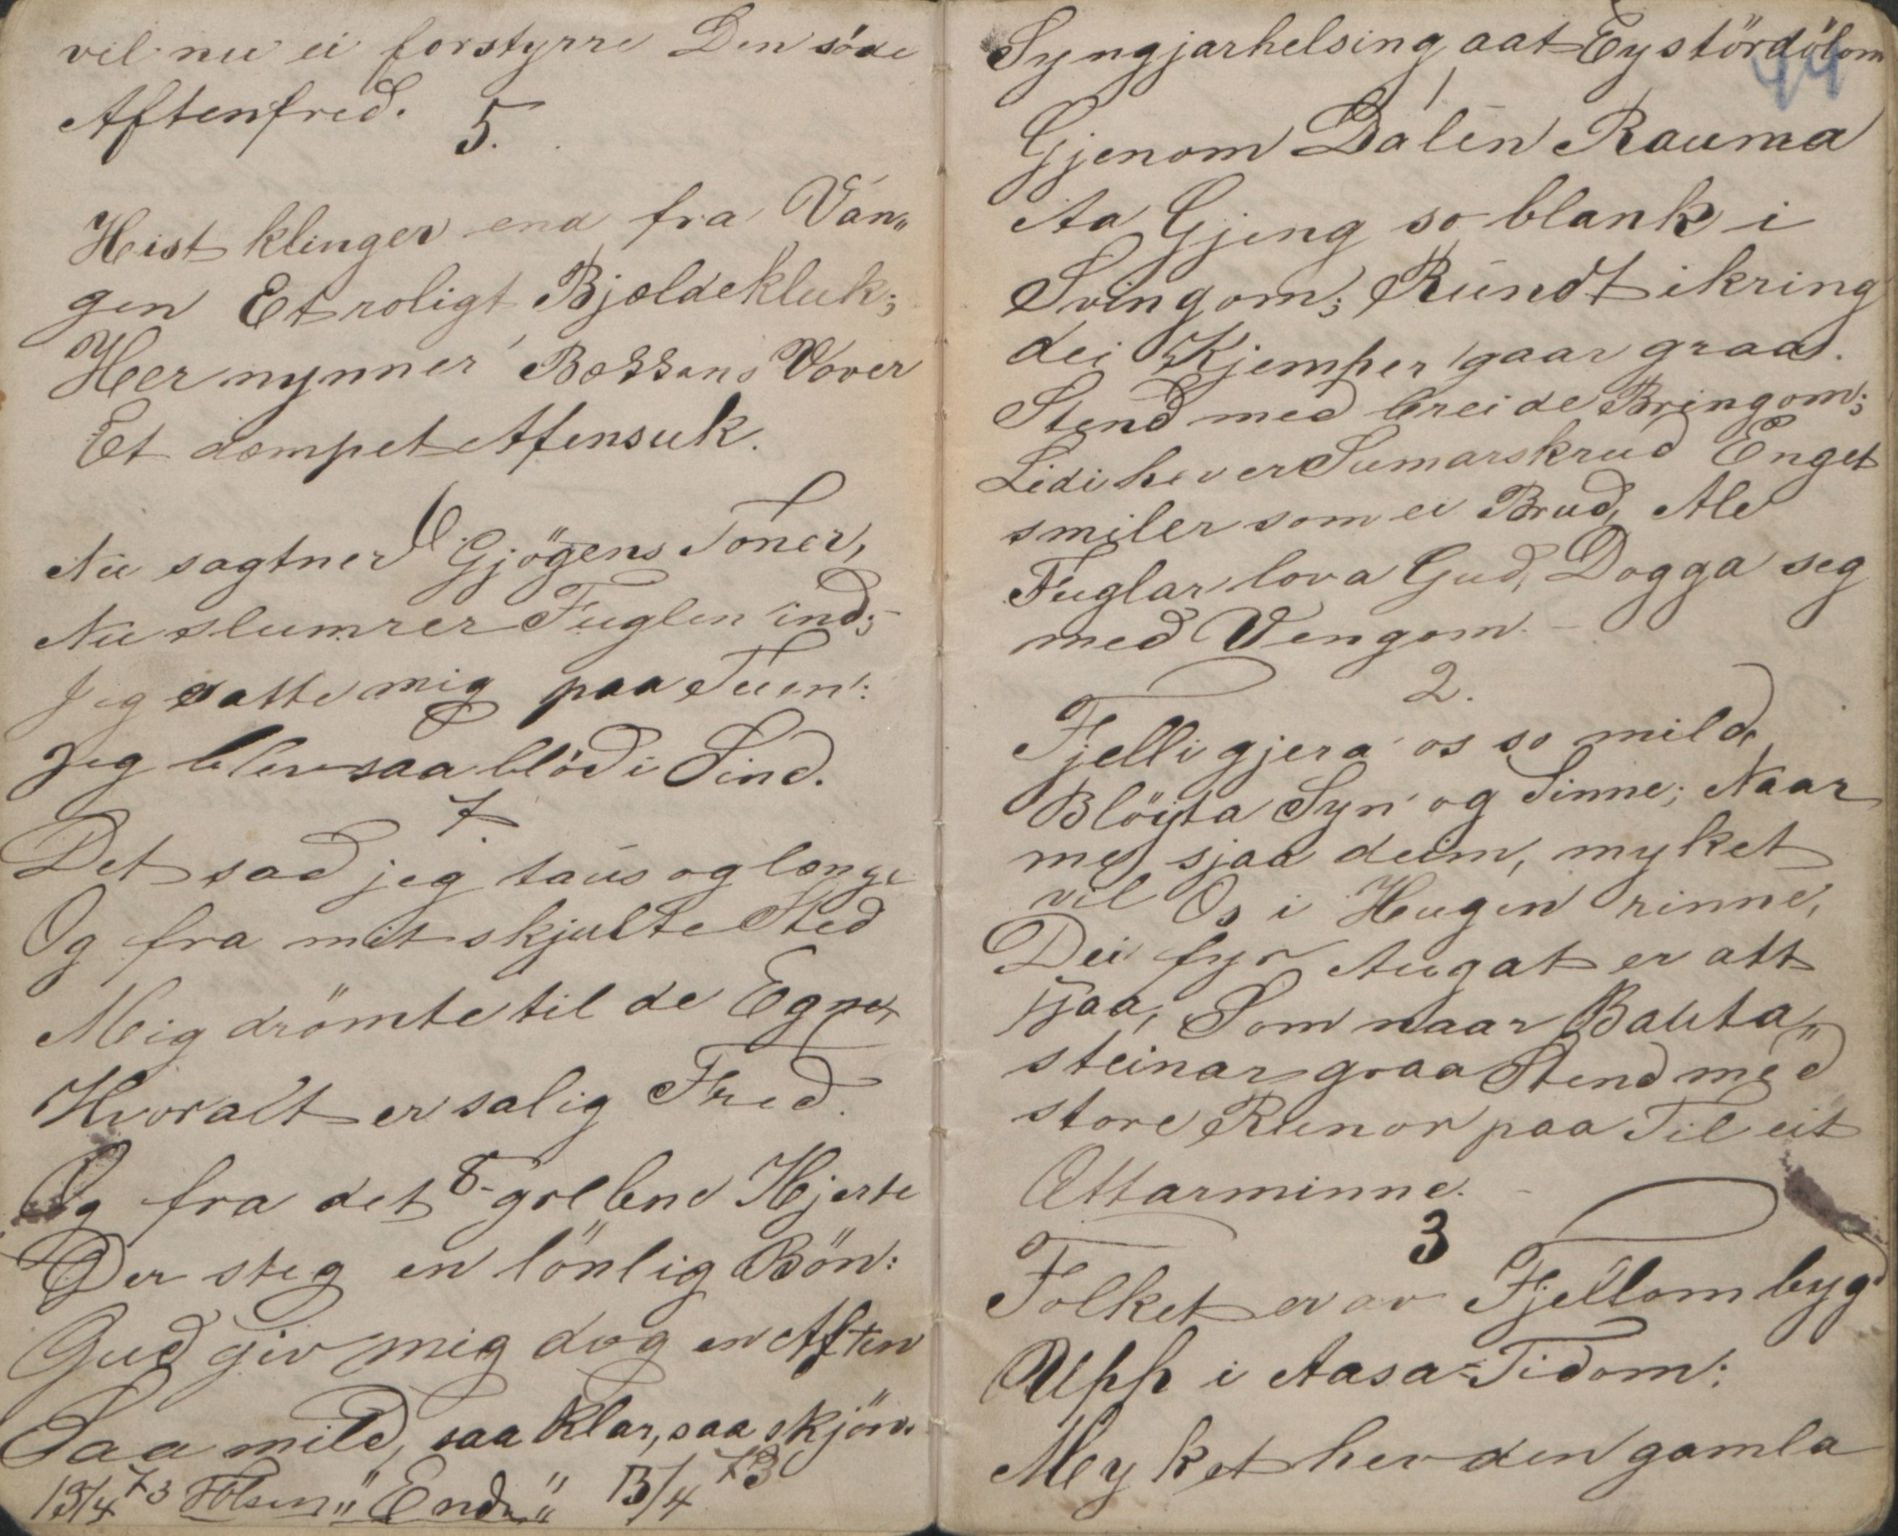 vil nu ei forstyrre Den söde
Aftenfred.
5.
Hist klinger end fra Van„
gen Et roligt Bjældekluk;
Her nynner Bækkens Vover
Et dæmpet Afensuk.
6
Nu sagtner Gjögens Toner,
Nu slumrer Fuglen ind;
Jeg satte mig paa Tuen:
Jeg blev saa blöd i Sind.
7
Det sad jeg taus og længe
Og fra mit skjulte Sted
Mig drömte til de Egne,
Hvor alt er salig Fred.
8-
Og fra det grebene Hjerte
Der steg en lönlig Bön:
Gud giv mig dog en Aften
Saa mild, saa klar, saa skjön.
13/4 73 „Ende„ 13/4 73
Syngjarhelsing aat Eystördölom
44
1
Gjenom Dalen Rauma
Aa Gjeng so blank i
Svingom; Rundt ikring
dei Kjemper gaar graa.
Stend med breide Bringom;
Lidi hever Sumarskrud Enget
smiler som ei Brud, Ale
Fuglar lova Gud, Dogga seg
med Vengom.
2.
Fjelli gjera os so mild,
Blöyta Syn og Sinne; Naar
me sjaa deim, myket
vil Os i Hugen rinne,
Dei fyr Augat er att
sjaa, Som naar Bauta„
steinar graa Stend med
store Runor paa Til eit
Ættarminne.
3
Folket er av Fjellom byg
Upp i Aasa-Tidom:
Myket hev den gamla